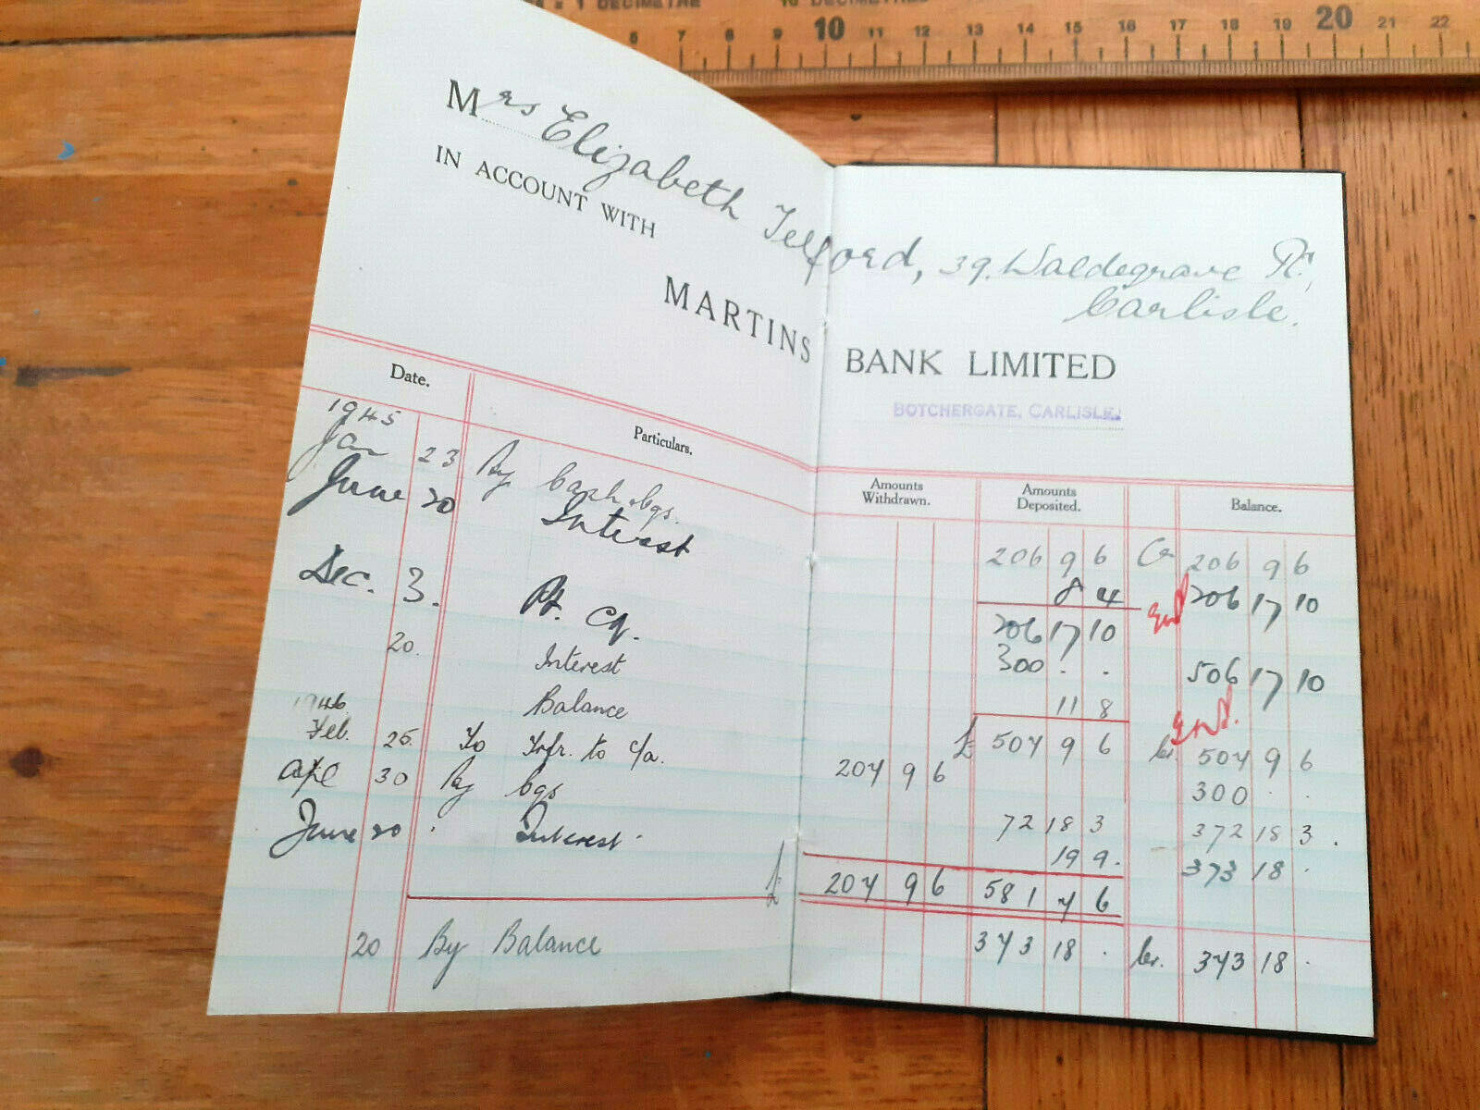 = 1 DECIMETRE 10 DECIMETRES
6 7 8 9 10 11 12 13 14 15 16 17 18 19 20 21 22
Mrs Elizabeth Telford, 39, Waldegrave Rd,
Carlisle.
IN ACCOUNT WITH
MARTINS BANK LIMITED
BOTCHERGATE, CARLISLE.
Date. Particulars. Amounts Withdrawn. Amounts Deposited. Balance.
1945
Jan 23 By Cash bgs. 206 9 6 Cr 206 9 6
June 20 Interest 8 4 206 17 10
206 17 10
Dec. 3. Pd. Cq. 300 . . 506 17 10
20. Interest 11 8
Balance £ 507 9 6 Cr. 507 9 6
1946
Feb. 25 To Trfr. to c/a. 207 9 6 300 . .
Apl 30 By bgs 72 18 3 372 18 3.
June 20 Interest 19 9. 373 18 .
£ 207 9 6 581 7 6
20 By Balance 373 18 . Cr. 373 18 .